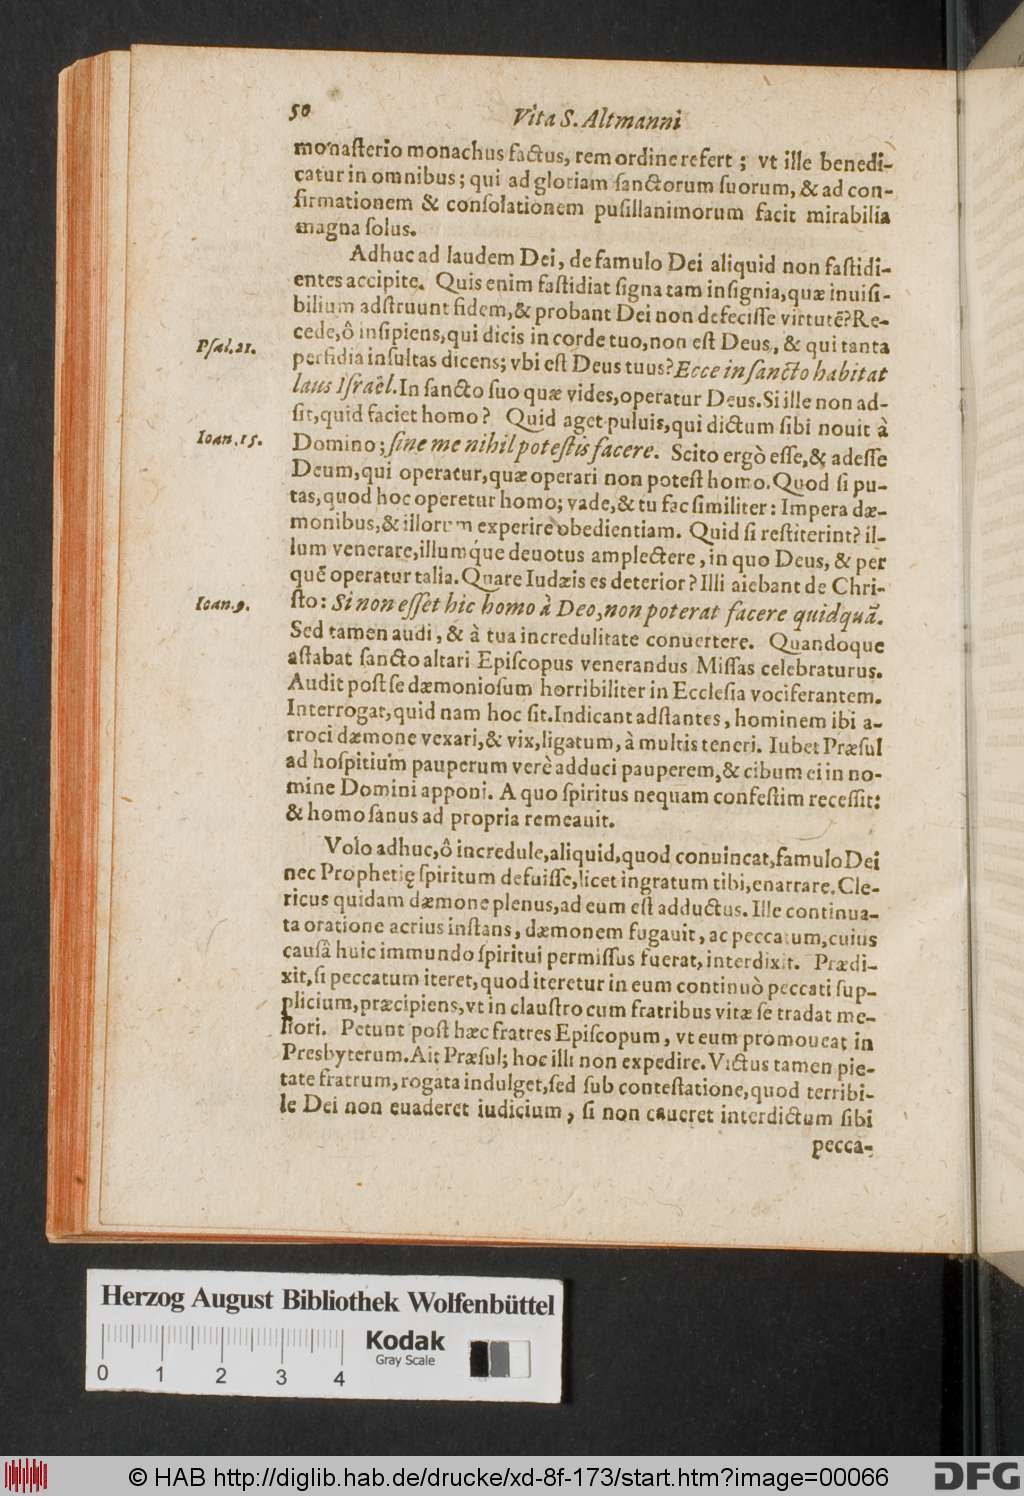 50
Vita S. Altmanni
monaſterio monachus factus, rem ordine refert ; vt ille benedi-
catur in omnibus ; qui ad gloriam ſanctorum ſuorum, & ad con-
firmationem & conſolationem puſillanimorum facit mirabilia
magna ſolus.
Adhuc ad laudem Dei, de famulo Dei aliquid non faſtidi-
entes accipite. Quis enim faſtidiat ſigna tam inſignia, quæ inuiſi-
bilium adſtruunt fidem, & probant Dei non defeciſſe virtutē? Re-
cede, ô inſipiens, qui dicis in corde tuo, non eſt Deus, & qui tanta
Pſal. 21.
perfidia inſultas dicens; vbi eſt Deus tuus? Ecce in ſancto habitat
laus Iſraël. In ſancto ſuo quæ vides, operatur Deus. Si ille non ad-
ſit, quid faciet homo? Quid aget puluis, qui dictum ſibi nouit à
Ioan. 15.
Domino; ſine me nihil poteſtis facere. Scito ergò eſſe, & adeſſe
Deum, qui operatur, quæ operari non poteſt homo. Quod ſi pu-
tas, quod hoc operetur homo; vade, & tu fac ſimiliter: Impera dæ-
monibus, & illorum experire obedientiam. Quid ſi reſtiterint? il-
lum venerare, illumque deuotus amplectere, in quo Deus, & per
quē operatur talia. Quare Iudæis es deterior? Illi aiebant de Chri-
Ioan. 9.
ſto: Si non eſſet hic homo à Deo, non poterat facere quidquā.
Sed tamen audi, & à tua incredulitate conuertere. Quandoque
aſtabat ſancto altari Epiſcopus venerandus Miſſas celebraturus.
Audit poſt ſe dæmonioſum horribiliter in Eccleſia vociferantem.
Interrogat, quid nam hoc ſit. Indicant adſtantes, hominem ibi a-
troci dæmone vexari, & vix, ligatum, à multis teneri. Iubet Præſul
ad hoſpitium pauperum verè adduci pauperem, & cibum ei in no-
mine Domini apponi. A quo ſpiritus nequam confeſtim receſſit:
& homo ſanus ad propria remeauit.
Volo adhuc, ô incredule, aliquid, quod conuincat, famulo Dei
nec Prophetię ſpiritum defuiſſe, licet ingratum tibi, enarrare. Cle-
ricus quidam dæmone plenus, ad eum eſt adductus. Ille continua-
ta oratione acrius inſtans, dæmonem fugauit, ac peccatum, cuius
causâ huic immundo ſpiritui permiſſus fuerat, interdixit. Prædi-
xit, ſi peccatum iteret, quod iteretur in eum continuò peccati ſup-
plicium, præcipiens, vt in clauſtro cum fratribus vitæ ſe tradat me-
liori. Petunt poſt hæc fratres Epiſcopum, vt eum promoueat in
Presbyterum. Ait Præſul; hoc illi non expedire. Victus tamen pie-
tate fratrum, rogata indulget, ſed ſub conteſtatione, quod terribi-
le Dei non euaderet iudicium, ſi non caueret interdictum ſibi
pecca-
Herzog August Bibliothek Wolfenbüttel
Kodak
Gray Scale
0 1 2 3 4
© HAB http://diglib.hab.de/drucke/xd-8f-173/start.htm?image=00066
DFG